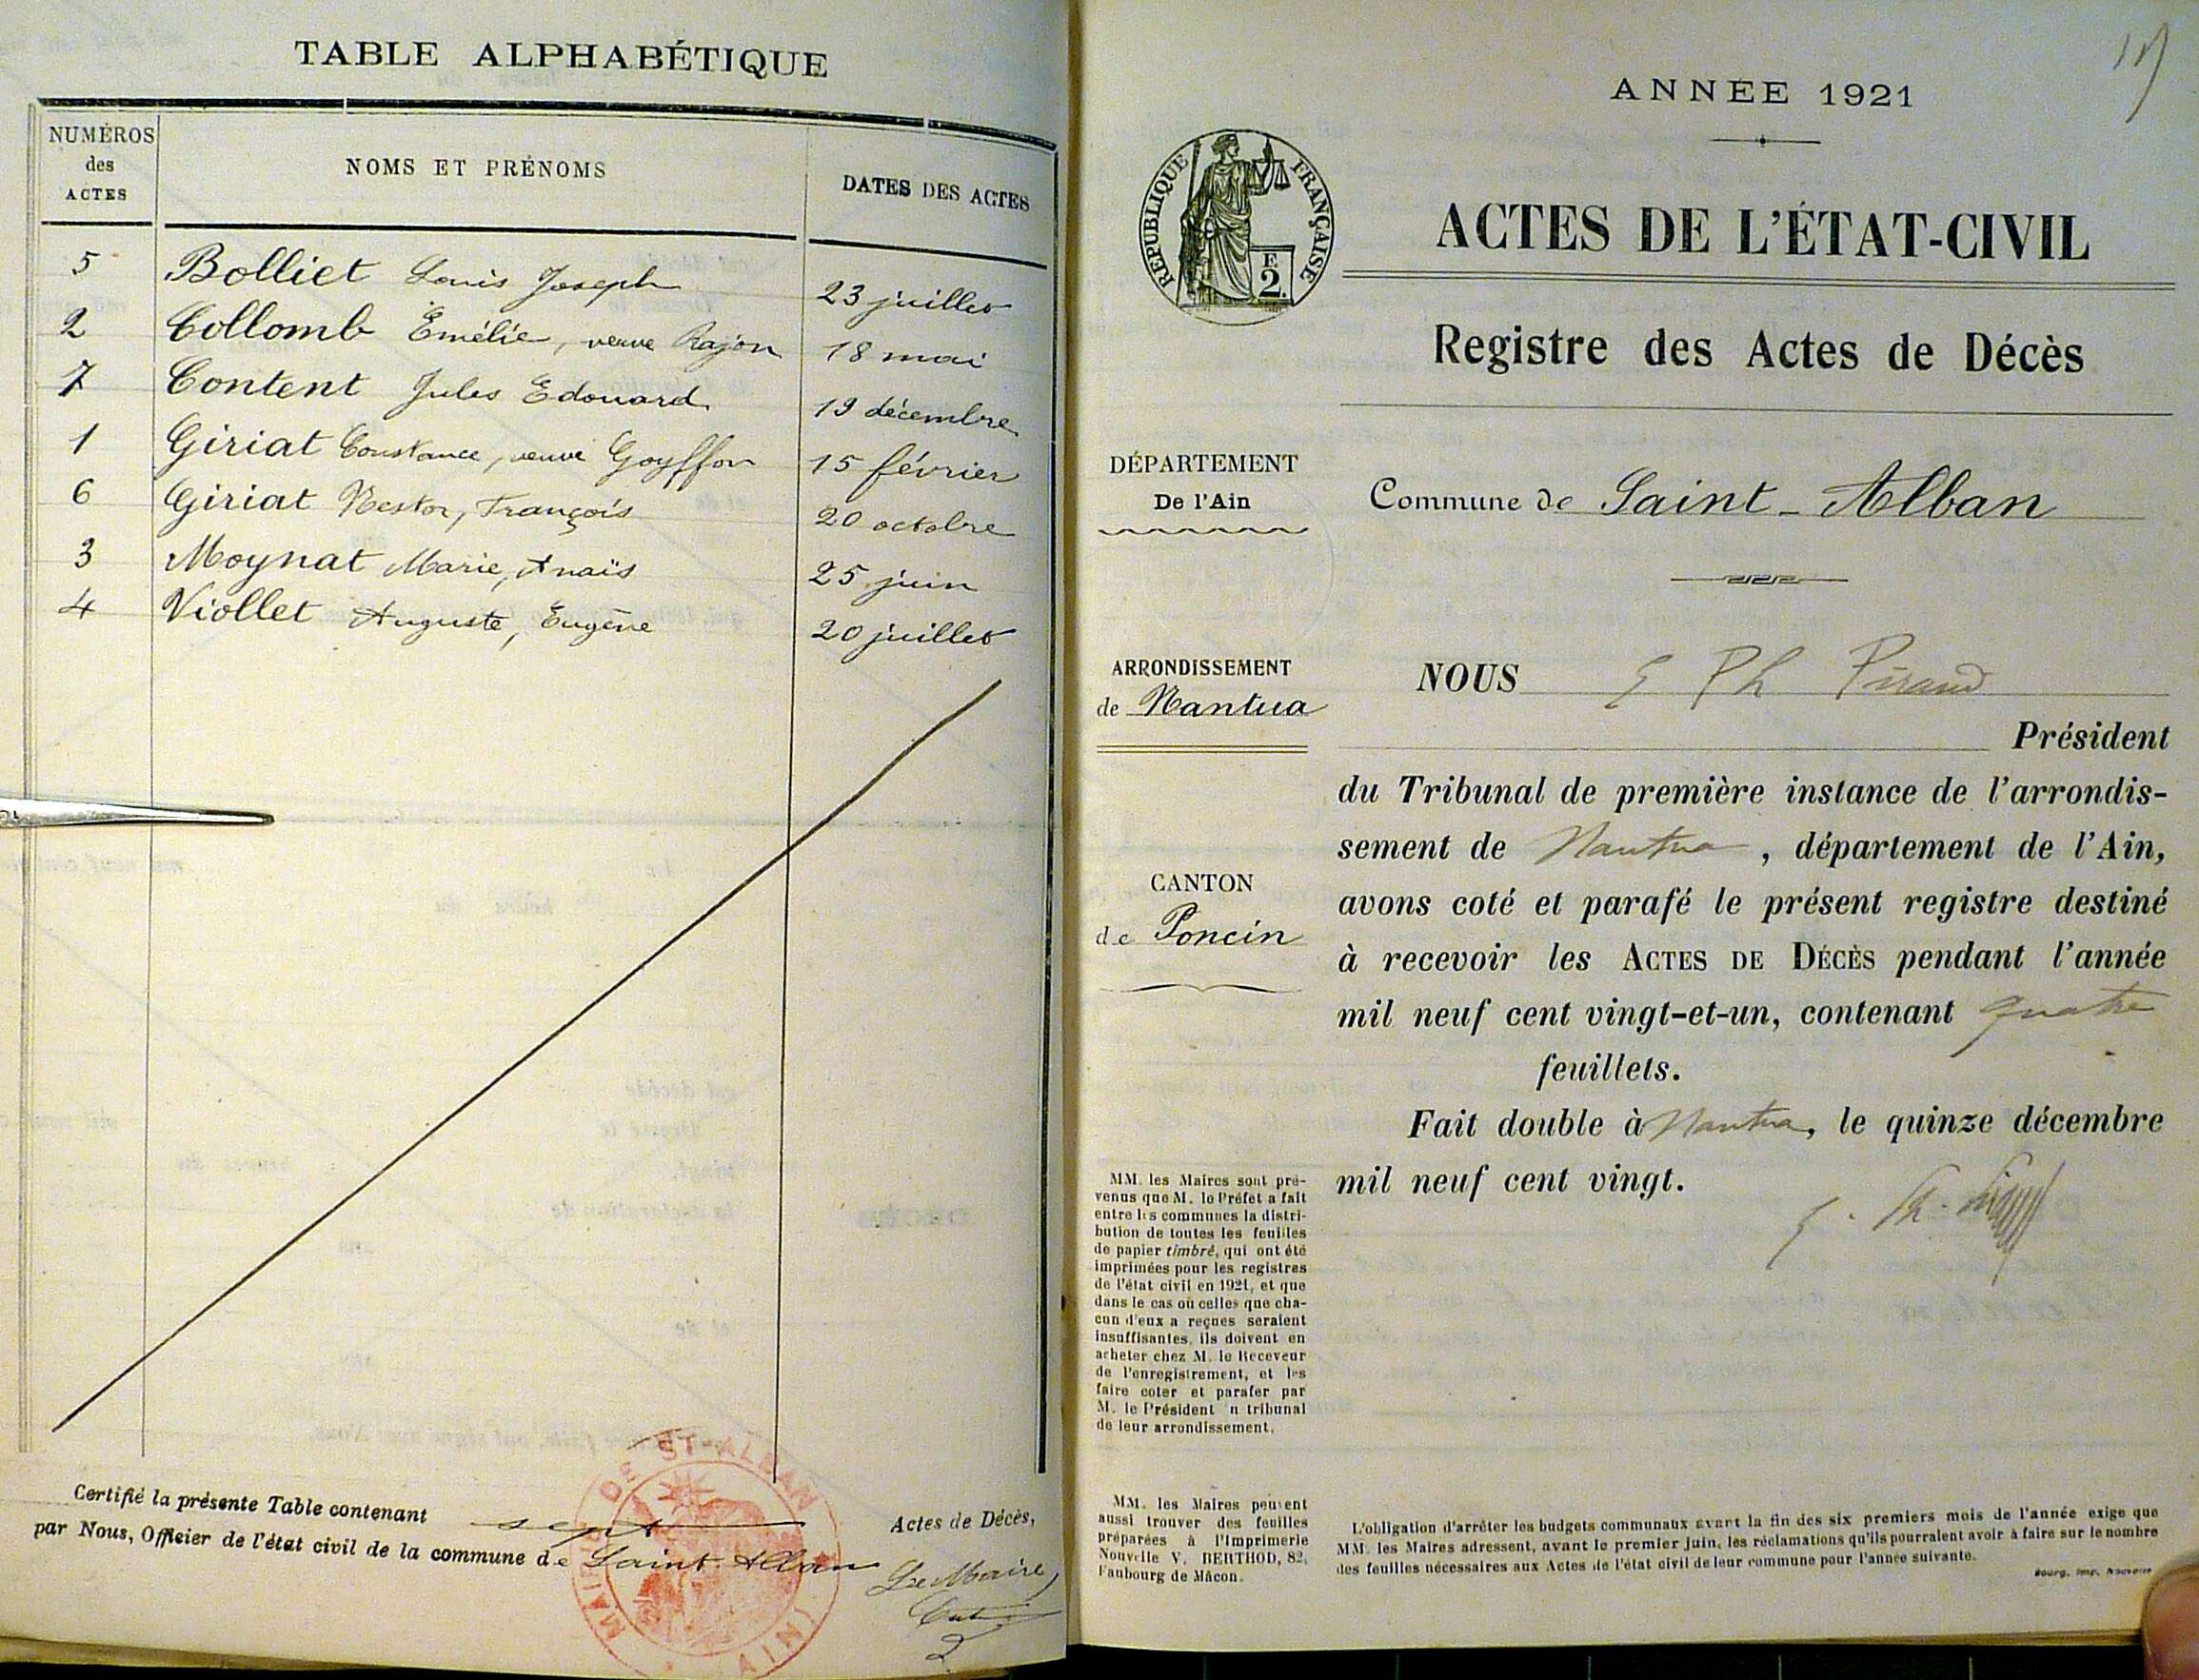 TABLE ALPHABÉTIQUE
NUMÉROS
des
ACTES
NOMS ET PRÉNOMS
DATES DES ACTES
5 Bolliet Louis Joseph 23 juillet
2 Collomb Émélie, veuve Rajon 18 mai
7 Content Jules Edouard 19 décembre
1 Giriat Constance, veuve Goyffon 15 février
6 Giriat Nestor, François 20 octobre
3 Moynat Marie, Anaïs 25 juin
4 Viollet Auguste, Eugène 20 juillet
Certifié la présente Table contenant sept Actes de Décès,
par Nous, Officier de l'état civil de la commune de Saint-Alban
Le Maire,
MAIRIE DE ST-ALBAN
AIN
ANNÉE 1921
RÉPUBLIQUE FRANÇAISE
E
2.
ACTES DE L'ÉTAT-CIVIL
Registre des Actes de Décès
DÉPARTEMENT
De l'Ain
Commune de Saint-Alban
ARRONDISSEMENT
de Nantua
CANTON
de Poncin
NOUS
Président
du Tribunal de première instance de l'arrondis-
sement de Nantua, département de l'Ain,
avons coté et parafé le présent registre destiné
à recevoir les ACTES DE DÉCÈS pendant l'année
mil neuf cent vingt-et-un, contenant quatre
feuillets.
Fait double à Nantua, le quinze décembre
mil neuf cent vingt.
MM. les Maires sont pré-
venus que M. le Préfet a fait
entre les communes la distri-
bution de toutes les feuilles
de papier timbré, qui ont été
imprimées pour les registres
de l'état civil en 1921, et que
dans le cas où celles que cha-
cun d'eux a reçues seraient
insuffisantes, ils doivent en
acheter chez M. le Receveur
de l'enregistrement, et les
faire coter et parafer par
M. le Président n tribunal
de leur arrondissement.
MM. les Maires peuvent
aussi trouver des feuilles
préparées à l'Imprimerie
Nouvelle V. BERTHOD, 82,
Faubourg de Mâcon.
L'obligation d'arrêter les budgets communaux avant la fin des six premiers mois de l'année exige que
MM. les Maires adressent, avant le premier juin, les réclamations qu'ils pourraient avoir à faire sur le nombre
des feuilles nécessaires aux Actes de l'état civil de leur commune pour l'année suivante.
Bourg, Imp. Nouvelle